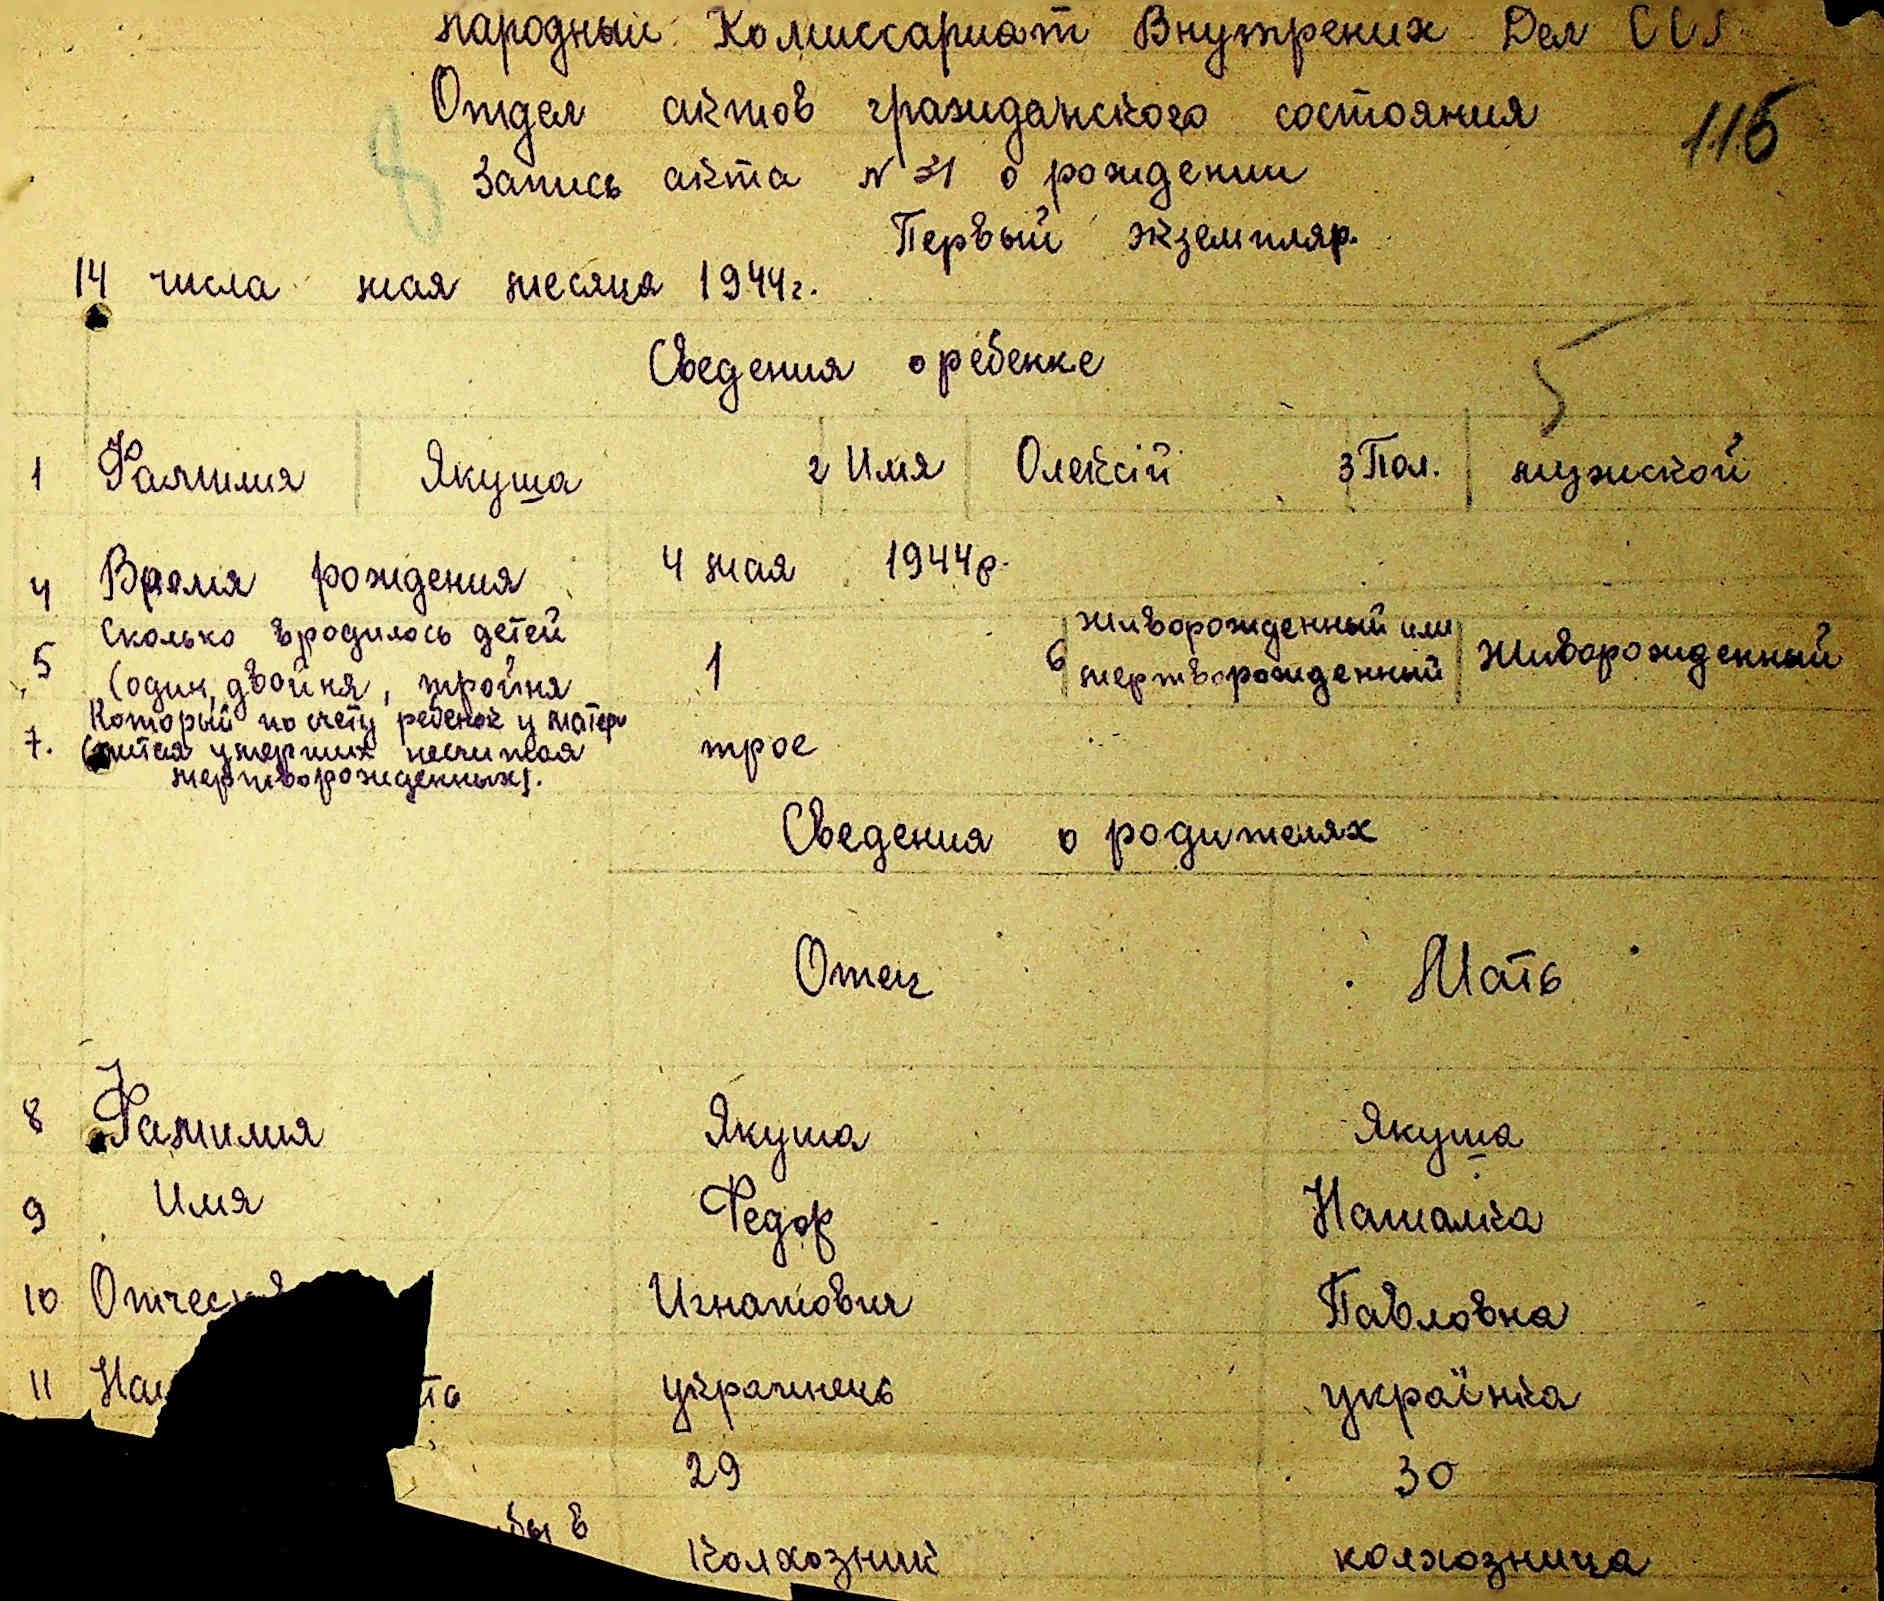 народный Комиссариат Внутрених Дел ССР
Отдел актов гражданского состояния
116
8
Запись акта N 31 о рождении
Первый экземпляр.
14 числа мая месяца 1944г.
Сведения о ребенке
1 Фамилия Якуша 2 Имя Олексій 3 Пол. мужской
4 Время рождения 4 мая 1944р.
5 Сколько вродилось детей
(один, двойня, тройня
1
6 живорожденный или
мертворожденный
Живорожденный
7. Который по счету ребенок у матери
умерших несчитая
мертворожденных).
трое
Сведения о родителях
Отец Мать
8 Фамилия Якуша Якуша
9 Имя Федор Наталка
10 Отчест Игнатович Павловна
11 На та украинець українка
29 30
бы в
колхозник колхозница